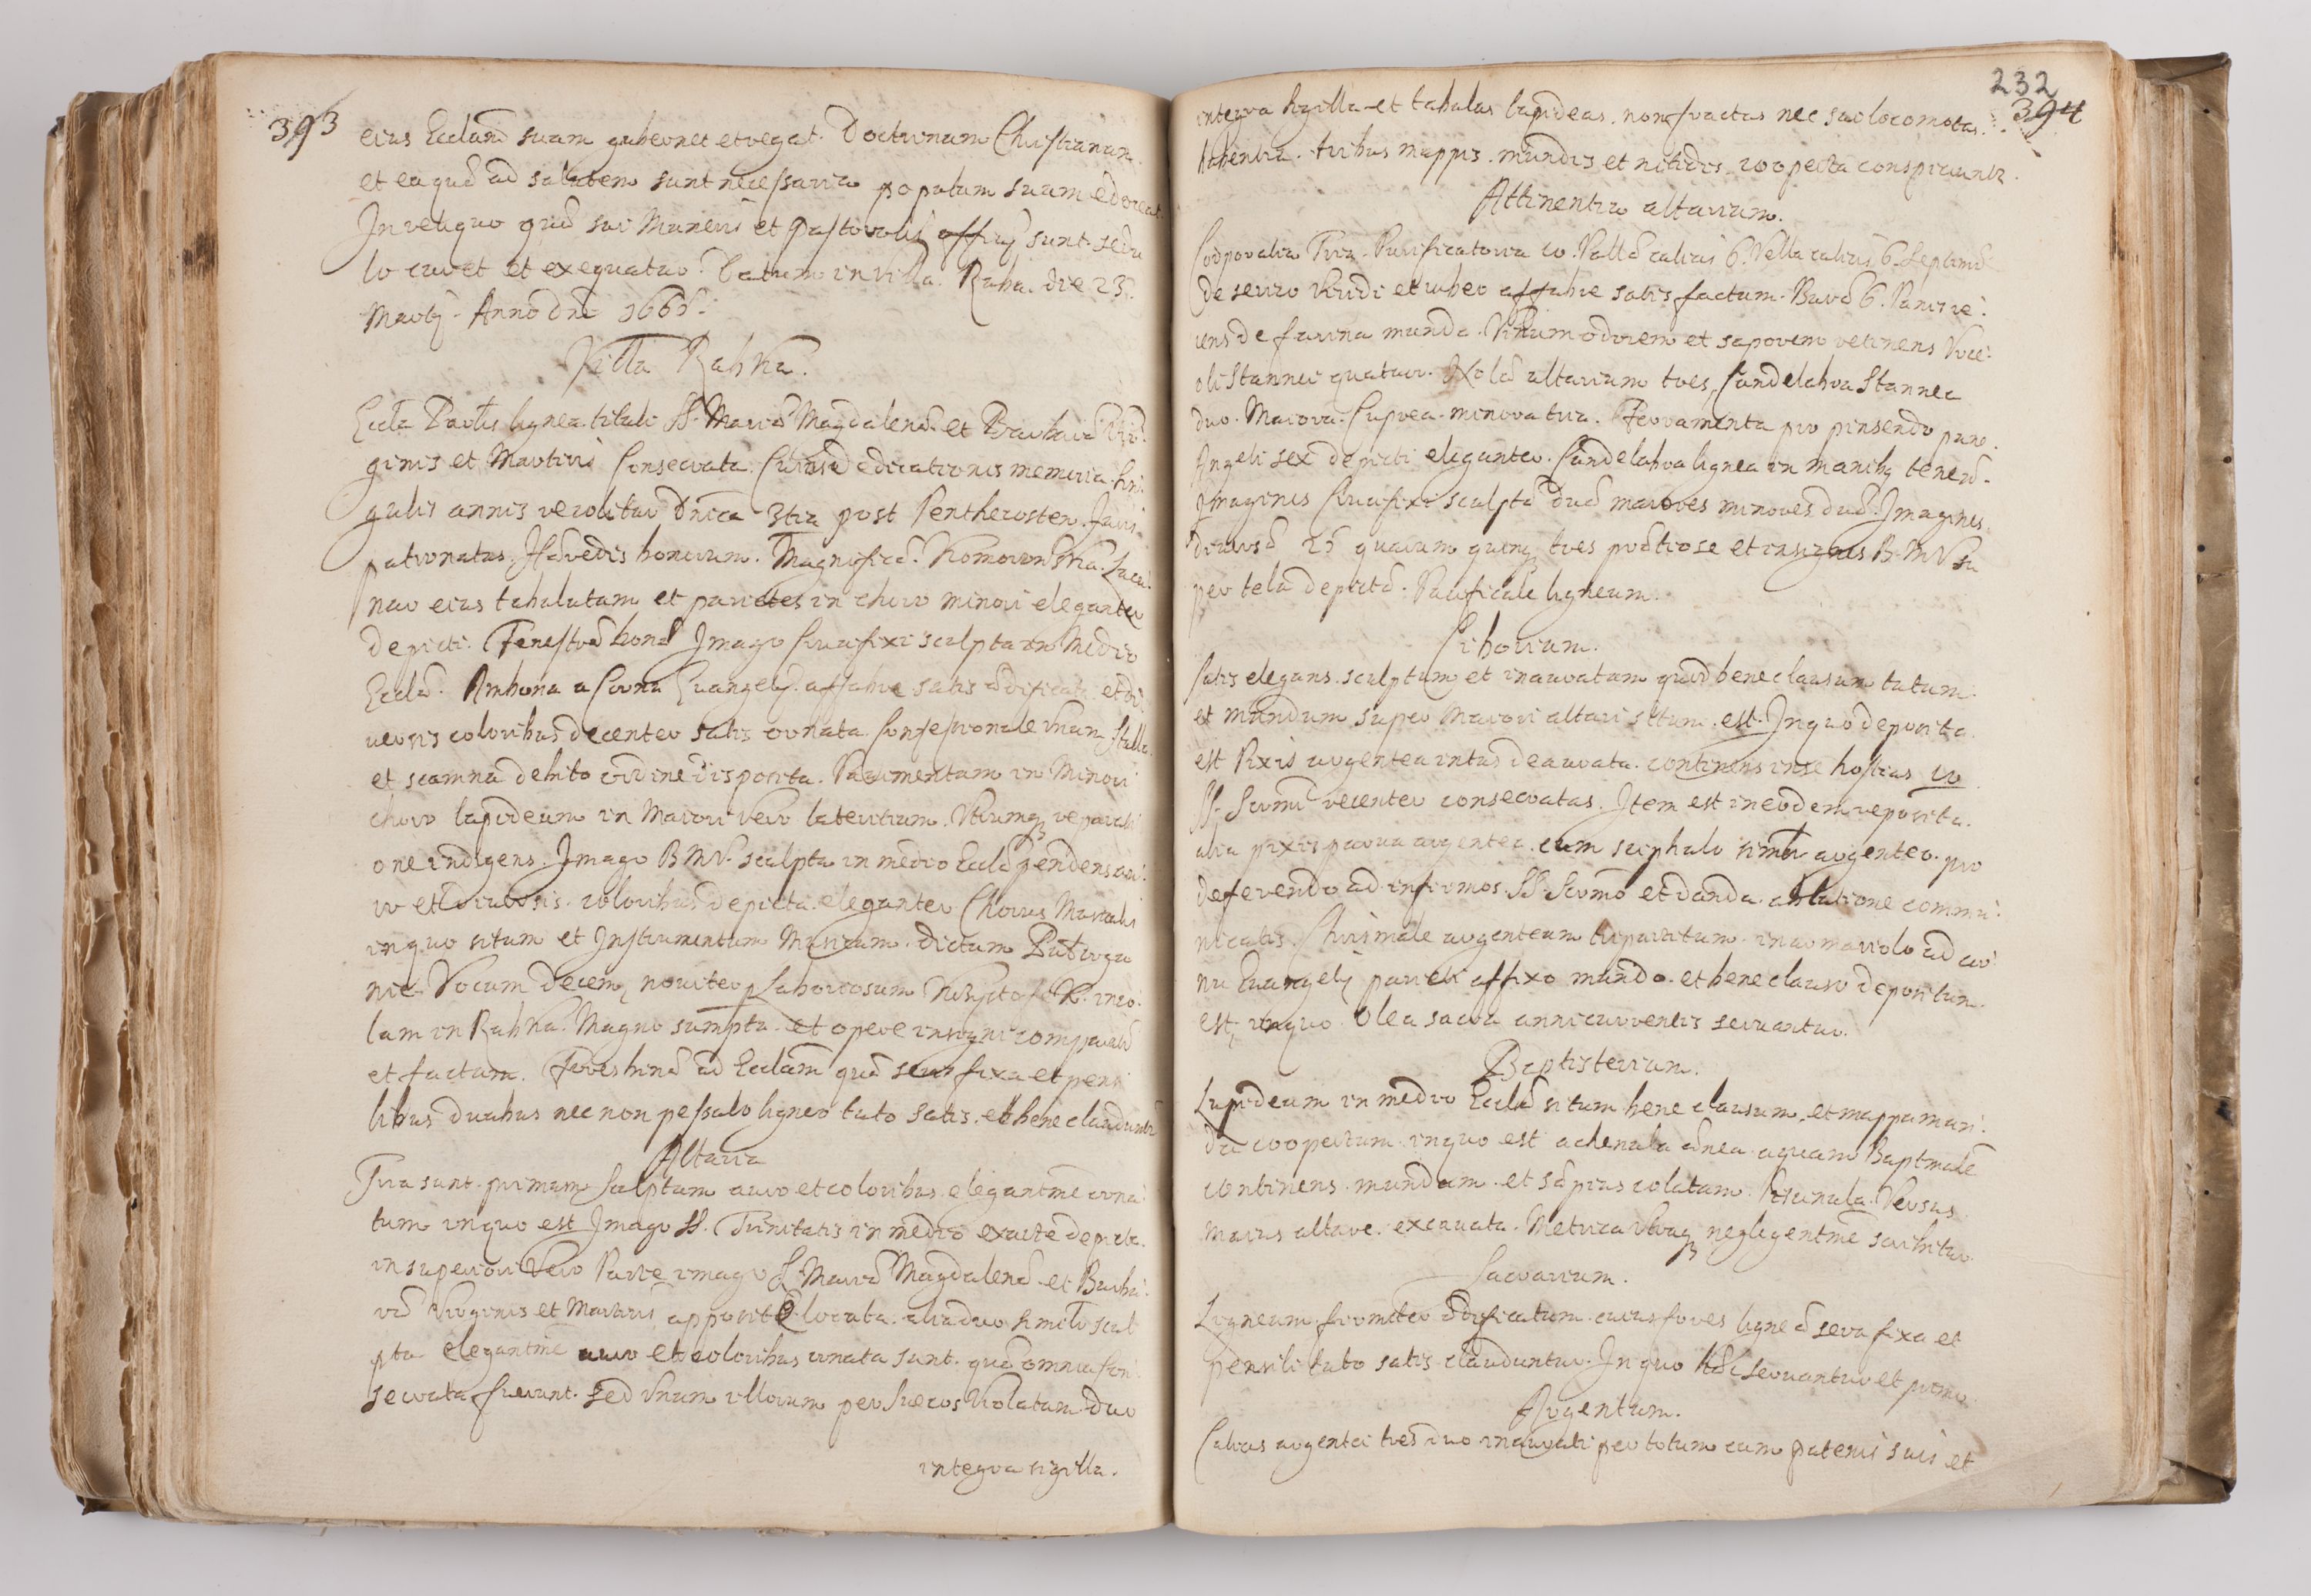 393
eius Eccland suam gubernet et regat. Doctrinam Christianam.
et ea quæ ad salutem sunt necessaria populum suum edoceat.
In reliquo quæ sui Muneris et Pastoralis officij sunt sedu
lo curet et exequatur. Datum in villa. Raba. die 23.
Martij. Anno dni 1665.
Villa Rabka.
Eccla Parlis lignea tituli SS. Mariæ Magdalenæ et Barbaræ Vir:
ginis et Martiris Consecrata. Cuius dedicationis memoria sin:
gulis annis recolitur Dnica 3tia post Penthecosten. Juris
patronatus. Hæredis bonorum. Magnificæ Komorowska. Lacu:
nar eius tabulatum et parietes in choro minori eleganter
depicti. Fenestræ bonæ Imago Crucifixi sculpta in Medio
Eccle. Ambona a Cornu Euangelij affabre satis ædificata et di
uersis coloribus decenter satis ornata. Confessionale vnum Stalla
et scamna debito ordine disposita. Pauimentum in Minori
choro lapideum in Maiori vero lateritium. Vtrumq reparati
one indigens. Imago BMV. sculpta in medio Eccle pendens au:
ro et diuersis coloribus depicta eleganter Chorus Musicalis
in quo situm et Instrumentum Musicum dictum
Vocum decem, nouiter Laboriosum
lam in Rabka. Magno sumptu. et opere insigni comparatu
et factum. Fores binæ ad Ecclam quæ seris fixa et pensi
libus duabus nec non pessulo ligneo tuto satis. et bene clauduntr
Altaria
Tria sunt. primum sculptum auro et coloribus elegantme orna
tum in quo est Imago SS. Trinitatis in medio exacte depicta.
in superiori vero Parte imago S. Mariæ Magdalenæ et Barba:
ræ Virginis et Martiris apposite locata. alia duo similr scul
pta elegantme auro et coloribus ornata sunt. quæ omnia con
secrata fuerunt. sed vnum illorum per Suecos violatum duo
integra sigilla.
232
394
integra sigilla et tabulas lapideas. non fractas nec suo loco motas
habentia. tribus mappis. mundis et nitidis cooperta conspiciuntr.
Attinentia altarium.
Corporalia Tria. Purificatoria 10. Pallæ calicis 6. Vella calicis 6.
de serico viridi et rubeo affabre satis factum. Bursæ 6. Panis re:
cens de farina munda. Vinum odorem et saporem retinens Vrce:
oli stannei quatuor. Nolæ altarium tres, Candelabra stannea
duo. Maiora. Cuprea. minora tria. Ferramenta pro pinsendo pane.
Angeli sex depicti eleganter. Candelabra lignea in manibq tenen.
Imagines Crucifixi sculptæ duæ maiores minores duæ. Imagines.
diuersæ 25 quarum quinq tres prætiose et insignes B.MV su
per tela depictæ. Pacificale ligneum.
Ciborium.
Satis elegans. sculptum et inauratum quod bene clausum tutum.
et mundum super Maiori altari situm. est. In quo deposita.
est Pixis argentea intus deaurata. continens in se hostias 10
SS. Scrmi recenter consecratas. Item est in eodem reposita.
alia pixis parua argentea. cum scyphulo similr argenteo. pro
deferendo ad infirmos. SS. Scrmo et danda. ablutione commu:
nicatis. Chrismale argenteum tripartitum. in armariolo ad cor
nu Euangelij parieti affixo mundo. et bene clauso depositum.
est, in quo Olea sacra anni currentis seruantur.
Baptisterium.
Lapideum in medio Eccle situm bene clausum. et mappa mun:
da coopertum. in quo est achenula ænea aquam Baptmale
continens. mundam. et sæpius colatam. Piscinula. Versus
maius altare. excauata. Metrica vtraq negligentme scribitur
Sacrarium.
Ligneum firmiter ædificatum. cuius fores ligneæ sera fixa et
pensili tuto satis clauduntur. In quo hæc seruantur et primo
Argentum.
Calices argentei tres duo inaurati per totum cum patenis suis et